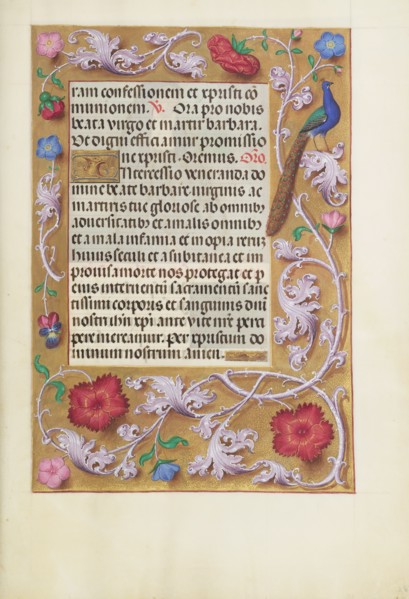 ram confessionem et xpristi cō
munionem. V. Ora pro nobis
beata virgo et martir barbara.
Ut digni efficiamur promissio
ne xpristi. Oremus. Oro.
Intercessio veneranda do
mine beate barbare virginis ac
martiris tue gloriose ab omnibus
adversitatibus et a malis omnibus
et a mala infamia et inopia rerum
huius seculi et a subitanea et im
provisa morte nos protegat et p
eius interventū sacramentū sanc
tissimi corporis et sanguinis dn̄i
nostri ihū xpi ante vite nr̄e
pere mereamur. Per xpristum do
minum nostrum amen.